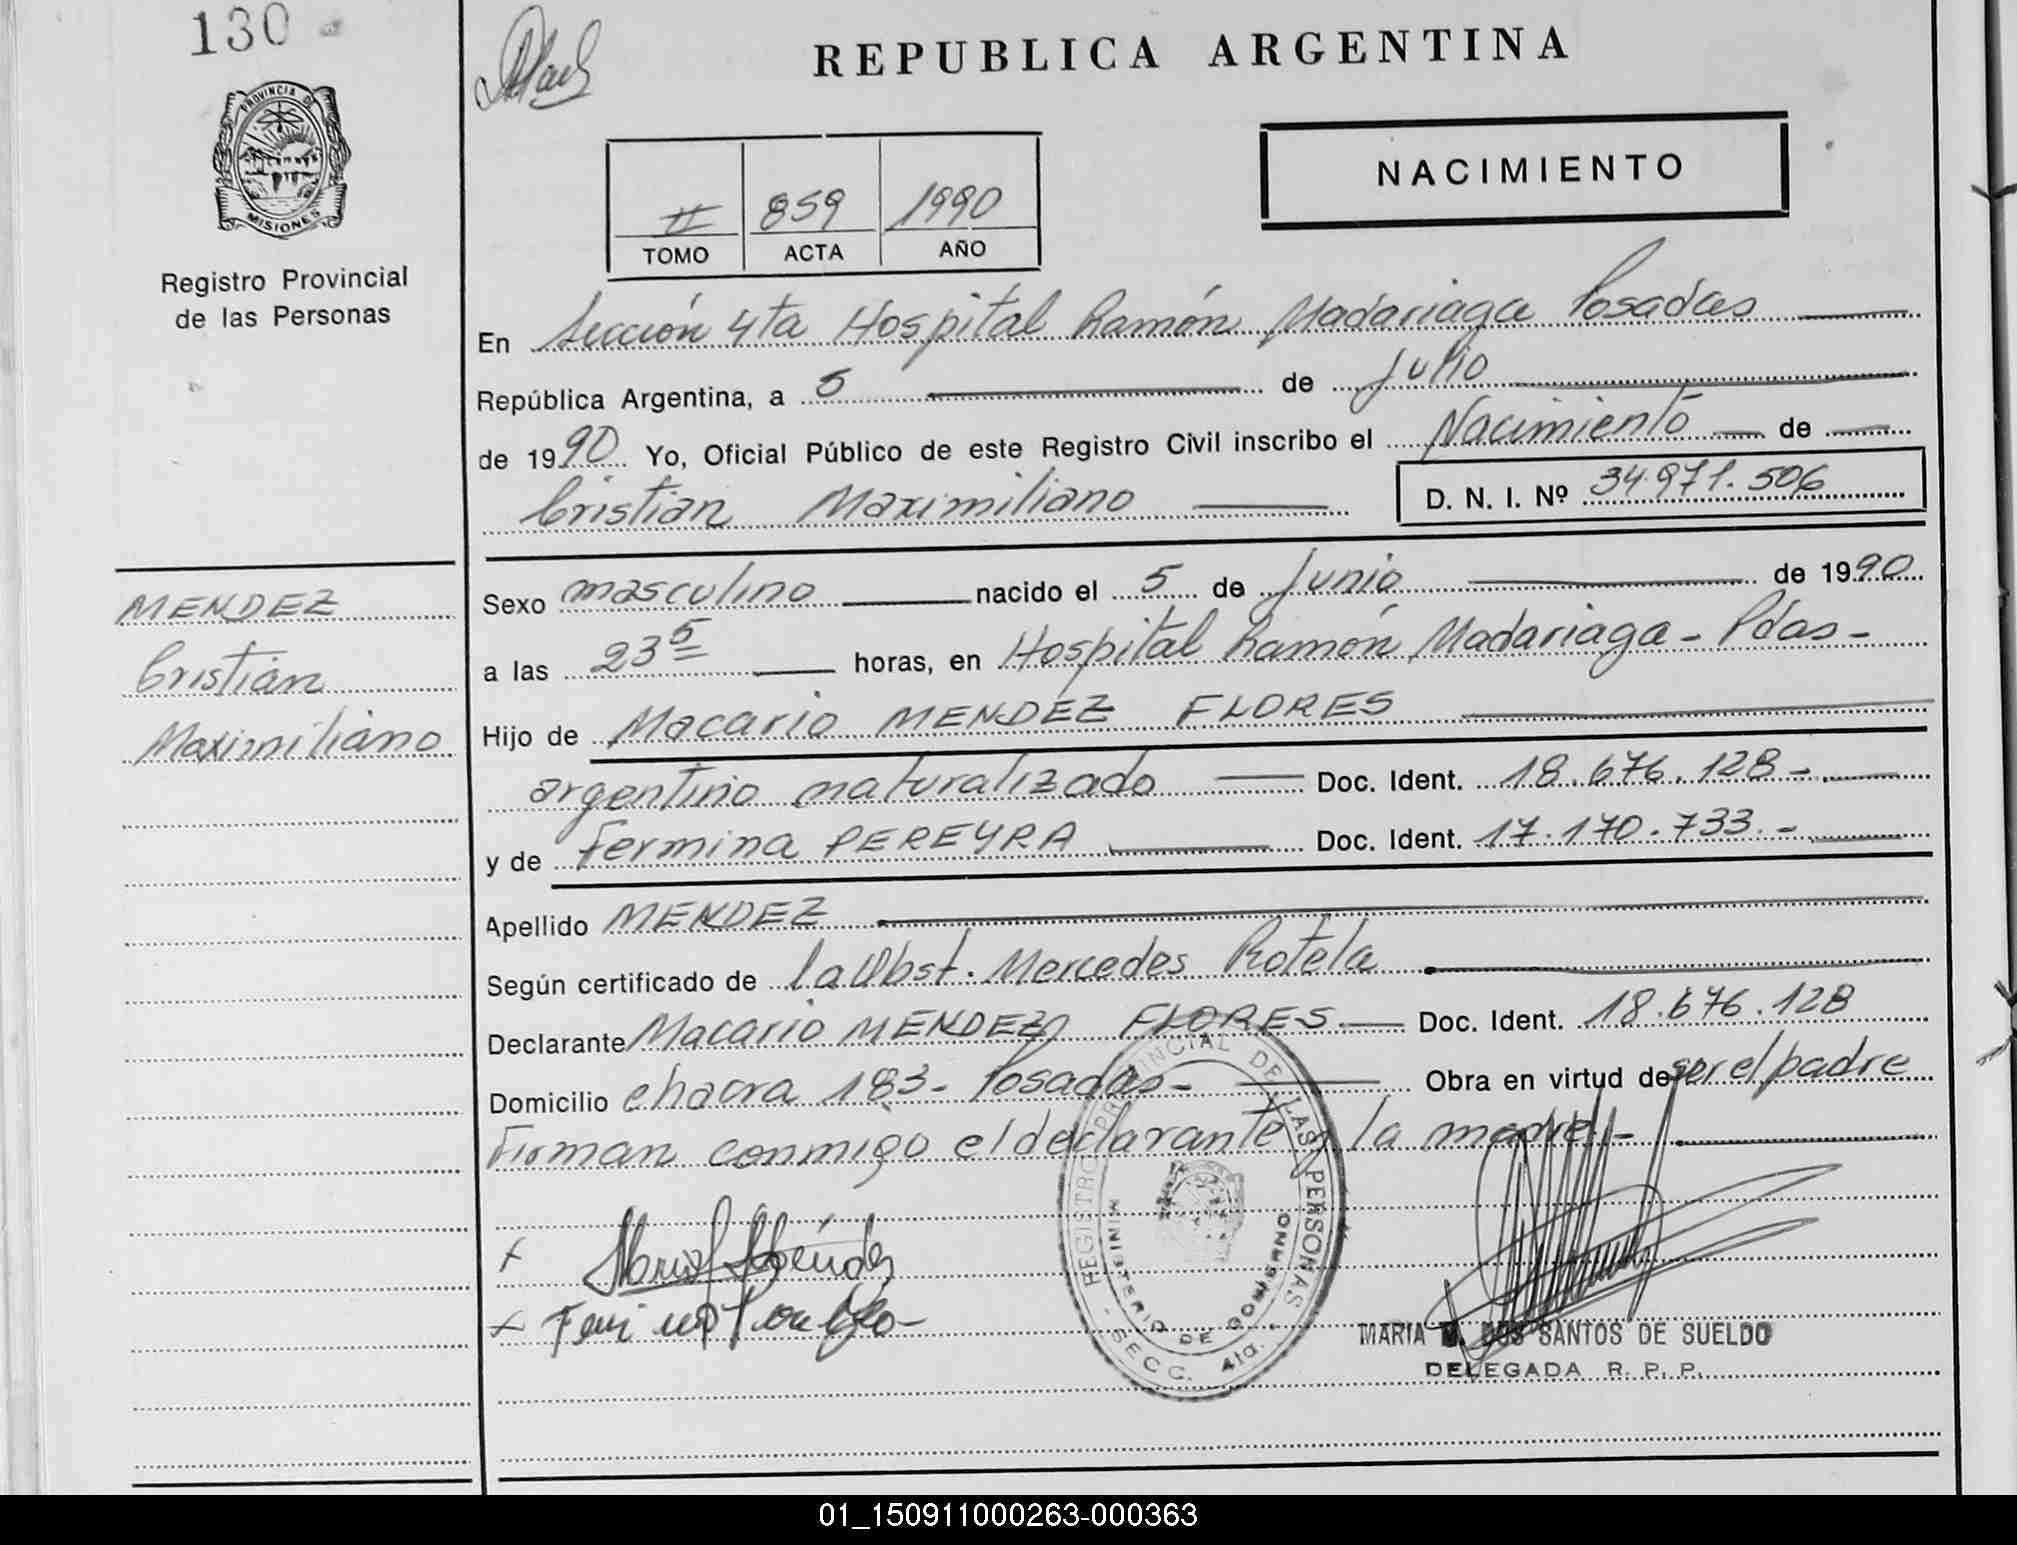 130
PROVINCIA DE
MISIONES
Registro Provincial
de las Personas
REPUBLICA ARGENTINA
NACIMIENTO
II 859 1990
TOMO ACTA AÑO
En Sección 4ta Hospital Ramón Madariaga Posadas
República Argentina, a 5 de Julio
de 1990 Yo, Oficial Público de este Registro Civil inscribo el Nacimiento de
Cristian Maximiliano D. N. I. Nº 34.971.506
MENDEZ
Cristian
Maximiliano
Sexo masculino nacido el 5 de Junio de 1990
a las 23 5 horas, en Hospital Ramón Madariaga - Pdas -
Hijo de Macario MENDEZ FLORES
argentino naturalizado Doc. Ident. 18.676.128 -
y de Fermina PEREYRA Doc. Ident. 17.170.733 -
Apellido MENDEZ
Según certificado de la Obst. Mercedes Rotela
Declarante Macario MENDEZ FLORES Doc. Ident. 18.676.128
Domicilio chacra 183 - Posadas - Obra en virtud de ser el padre
Firman conmigo el declarante y la madre -
REGISTRO PROVINCIAL DE LAS PERSONAS
MINISTERIO DE GOBIERNO
- SECC. 4ta. -
MARIA DOS SANTOS DE SUELDO
DELEGADA R. P. P.
01_150911000263-000363